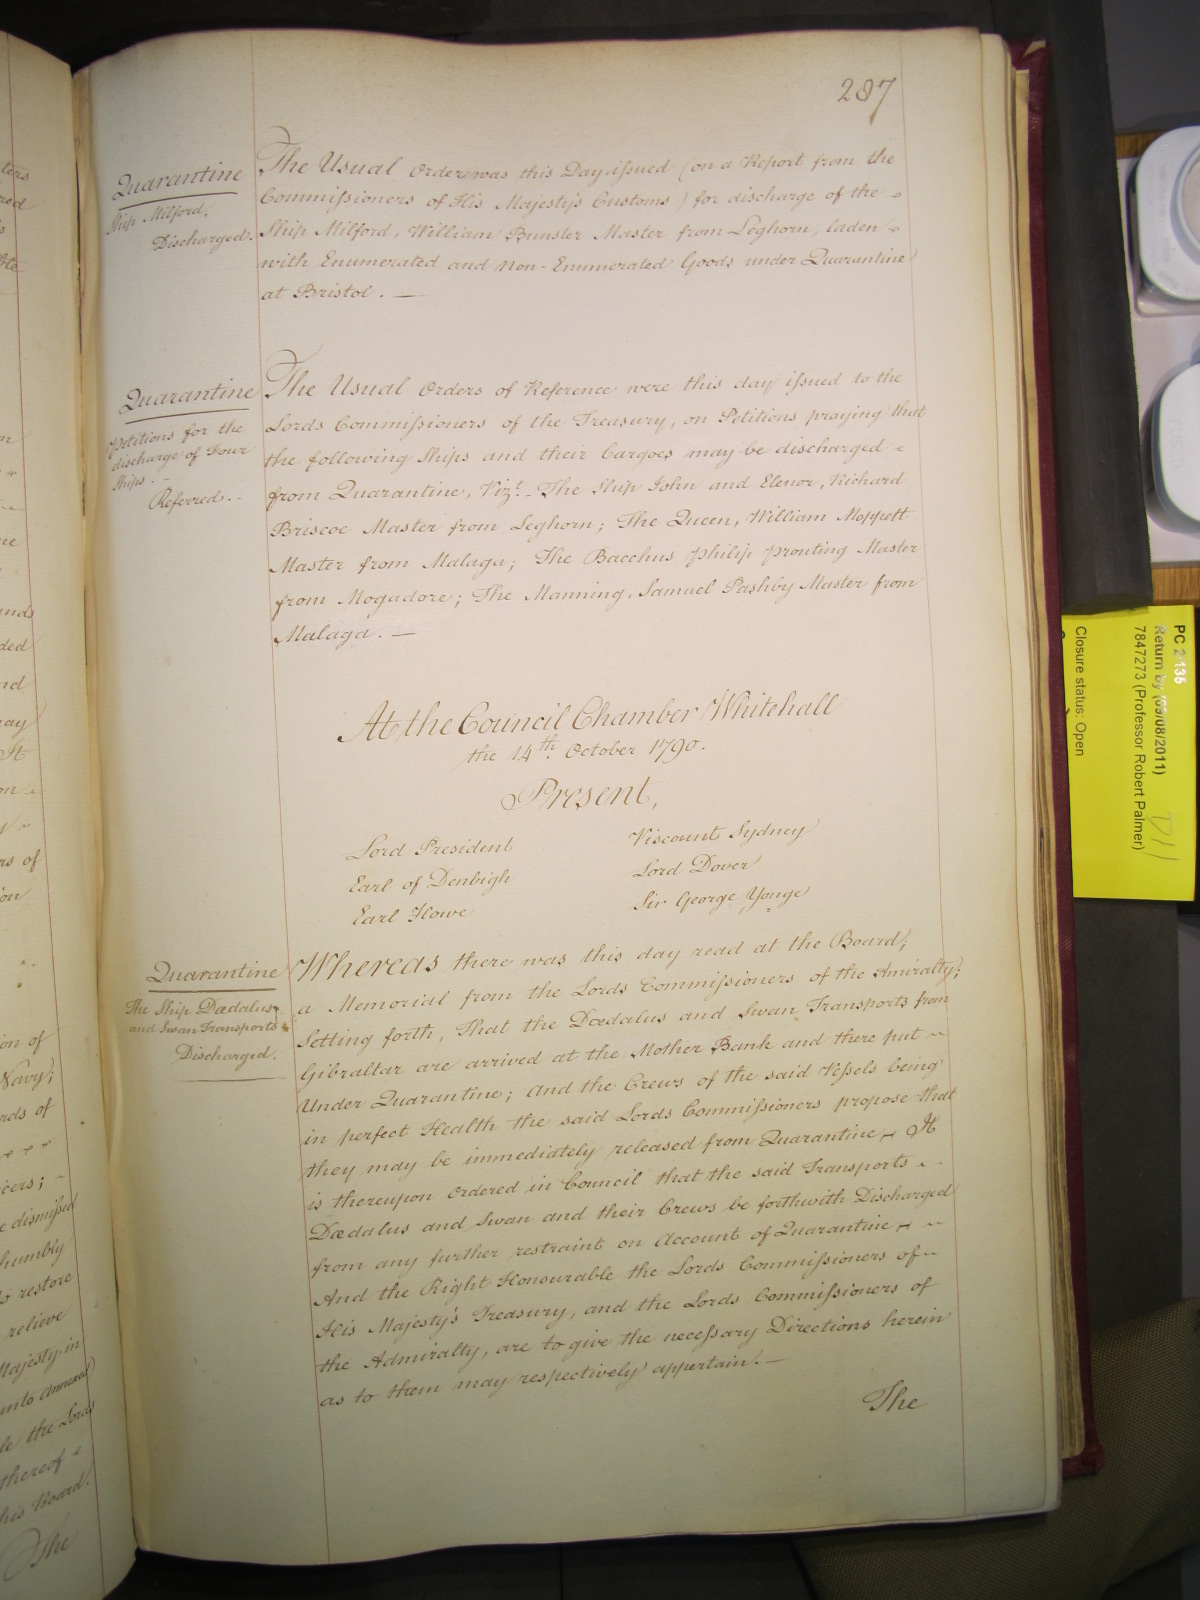 287
Quarantine
Ship Milford,
Discharged.
The Usual Order was this Day issued (on a Report from the
Commissioners of His Majesty's Customs) for discharge of the
Ship Milford, William Bunster Master from Leghorn, laden
with Enumerated and Non-Enumerated Goods under Quarantine
at Bristol. —
Quarantine
Petitions for the
discharge of Four
Ships. -
Referred. -
The Usual Orders of Reference were this day issued to the
Lords Commissioners of the Treasury, on Petitions praying that
the following Ships and their Cargoes may be discharged
from Quarantine, Vizt. - The Ship John and Elenor, Richard
Briscoe Master from Leghorn; The Queen, William Moppett
Master from Malaga; The Bacchus Philip Prouting Master
from Mogadore; The Manning, Samuel Pashby Master from
Malaga. —
At the Council Chamber Whitehall
the 14th. October 1790.
Present,
Lord President
Earl of Denbigh
Earl Howe
Viscount Sydney
Lord Dover
Sir George Yonge
Quarantine
The Ship Dædalus
and Swan Transports
Discharged.
Whereas there was this day read at the Board,
a Memorial from the Lords Commissioners of the Amiralty;
Setting forth, That the Dædalus and Swan Transports from
Gibraltar are arrived at the Mother Bank and there put
Under Quarantine; And the Crews of the said Vessels being
in perfect Health the said Lords Commissioners propose that
they may be immediately released from Quarantine, It
is thereupon Ordered in Council that the said Transports
Dædalus and Swan and their Crews be forthwith Discharged
from any further restraint on Account of Quarantine,
And the Right Honourable the Lords Commissioners of
His Majesty's Treasury, and the Lords Commissioners of
the Admiralty, are to give the necessary Directions herein
as to them may respectively appertain. —
The
PC 2/135
Return by (09/08/2011)
7847273 (Professor Robert Palmer)
Closure status: Open